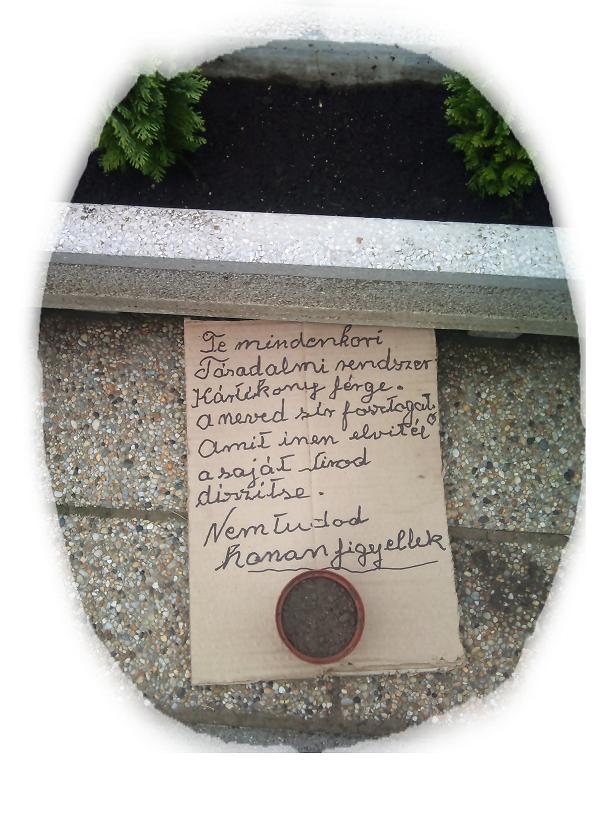 Te mindenkori
Tásadalmi rendszer
Kártékony férge.
a neved sír fosztogató
Amit inen elvitél
a saját sírod
díszítse.
Nem tudod
honan figyellek